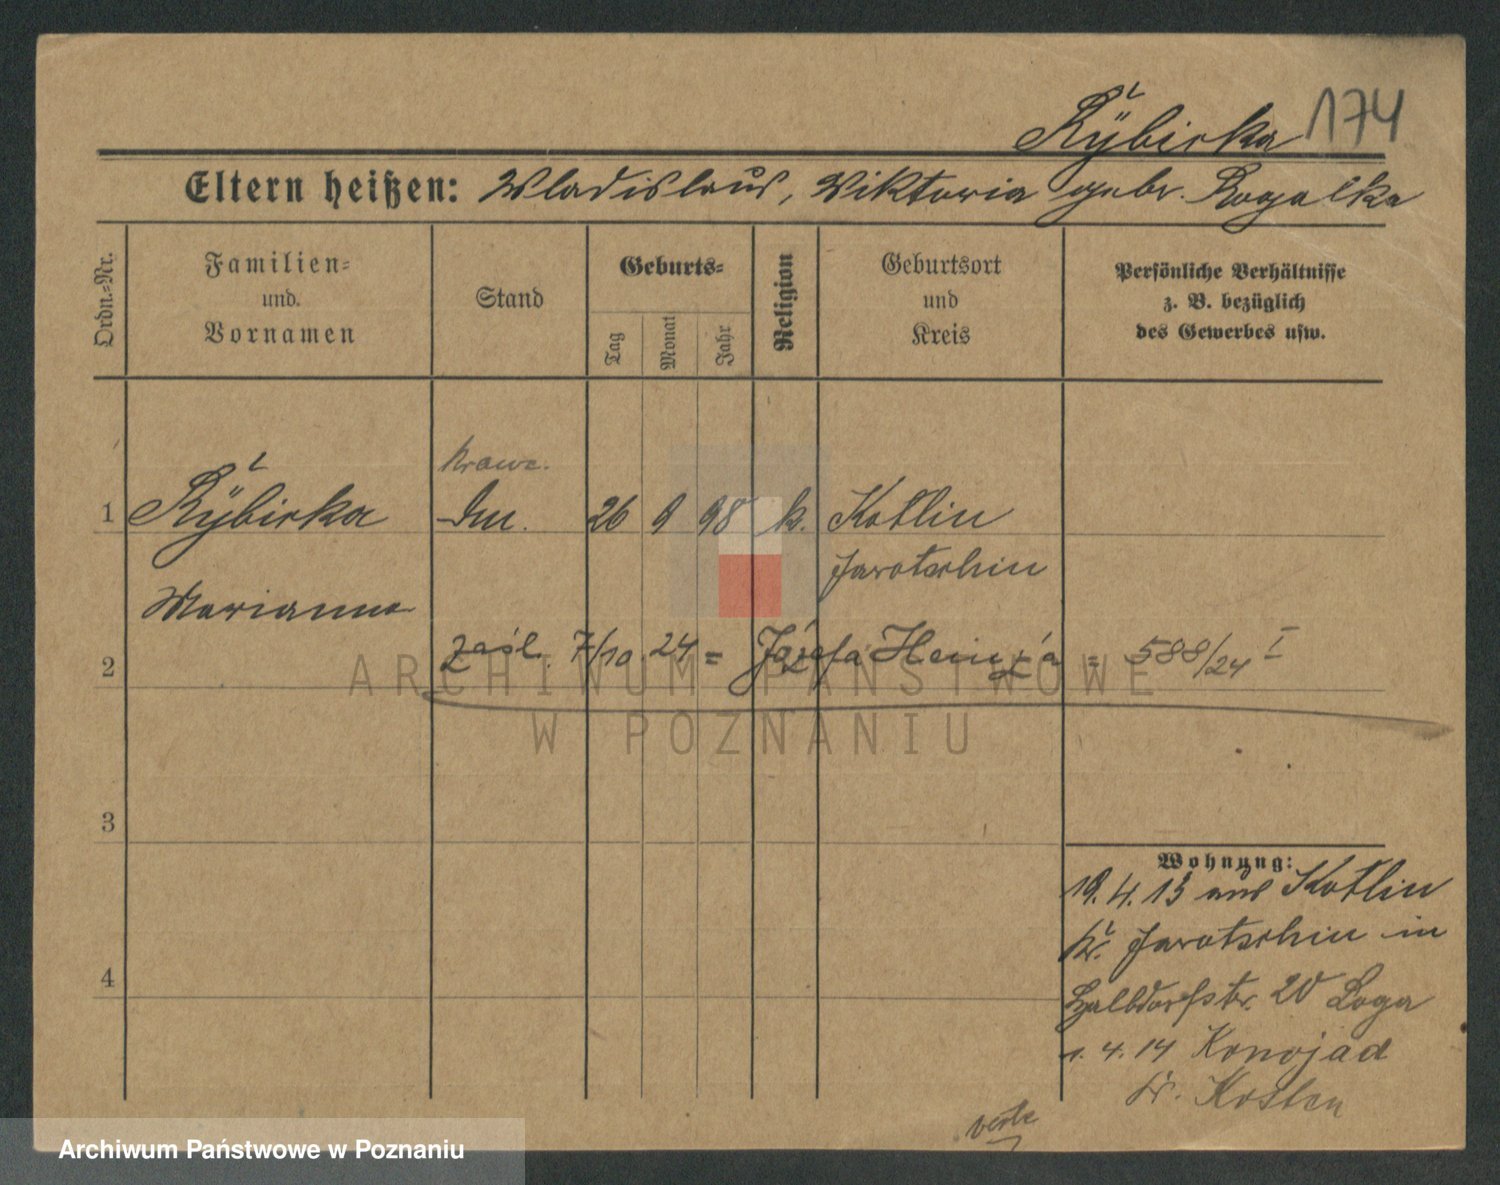 Rÿbicka 174
Eltern heißen: Wladislaus, Viktoria gebr. Rogalka
Ordn.-Nr.
Familien-
und
Vornamen
Stand
Geburts-
Tag
Monat
Jahr
Religion
Geburtsort
und
Kreis
Persönliche Verhältnisse
z. B. bezüglich
des Gewerbes usw.
krawc.
1 Rÿbicka 26 9 98 k. Kotlin
Jarotschin
Marianna
2 zaśl. 7/10 24 = Józefa Heinza = 588/24 I
ARCHIWUM PAŃSTWOWE
W POZNANIU
3
Wohnung:
19. 4. 13 aus Kotlin
Kr. Jarotschin in
Halbdorfstr. 20 Loga
4
1. 4. 14 Konojad
Kr. Kosten
verte
Archiwum Państwowe w Poznaniu